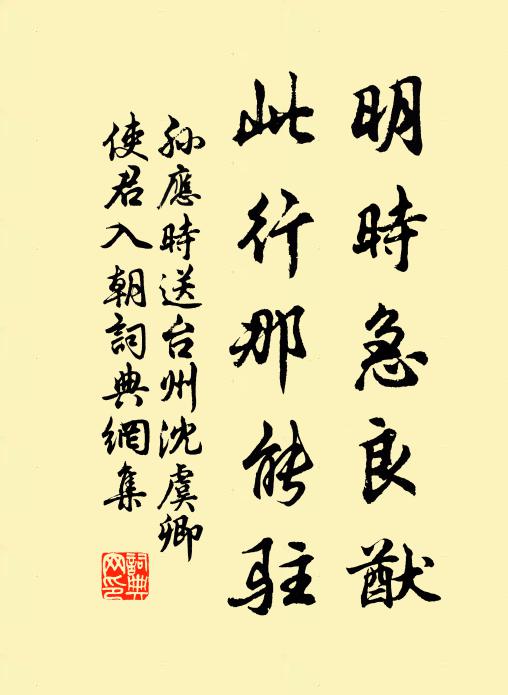 明時急良猷
此行那能駐
孫應時送台州沈虞卿
使君入朝詞典網集
詞典
网印